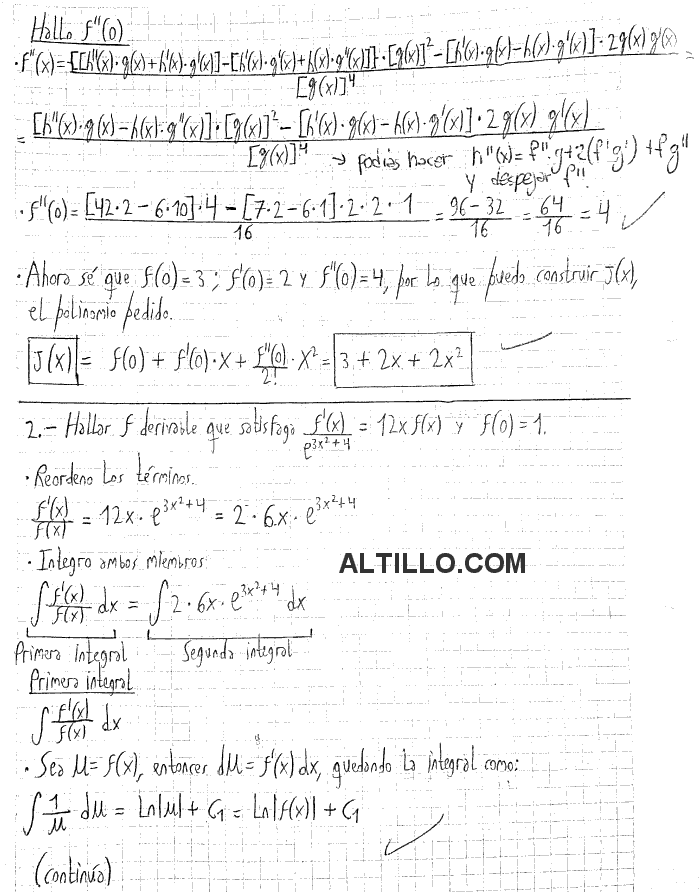 Hallo f''(0)
· f''(x) = {[h''(x)·g(x)+h'(x)·g'(x)]-[h'(x)·g'(x)+h(x)·g''(x)]}·[g(x)]² - [h'(x)·g(x)-h(x)·g'(x)]·2g(x) g'(x) =
[g(x)]⁴
= [h''(x)·g(x) - h(x)·g''(x)]·[g(x)]² - [h'(x)·g(x) - h(x)·g'(x)]·2g(x) g'(x)
[g(x)]⁴ → podías hacer h''(x) = f''·g+2(f'g')+fg''
y despejar f''.
· f''(0) = [42·2 - 6·10]·4 - [7·2 - 6·1]·2·2·1 / 16 = 96-32 / 16 = 64 / 16 = 4 ✓
· Ahora sé que f(0)=3 ; f'(0)=2 y f''(0)=4, por lo que puedo construir J(x),
el polinomio pedido.
J(x) = f(0) + f'(0)·x + f''(0)/2! · x² = 3 + 2x + 2x² ✓
2.- Hallar f derivable que satisfaga f'(x)/e^{3x²+4} = 12x f(x) y f(0)=1.
· Reordeno los términos.
f'(x)/f(x) = 12x · e^{3x²+4} = 2·6x · e^{3x²+4}
· Integro ambos miembros
ALTILLO.COM
∫ f'(x)/f(x) dx = ∫ 2·6x·e^{3x²+4} dx
Primera integral Segunda integral
Primera integral
∫ f'(x)/f(x) dx
· Sea μ = f(x), entonces dμ = f'(x) dx, quedando la integral como:
∫ 1/μ dμ = Ln|μ| + C₁ = Ln|f(x)| + C₁ ✓
(continúa)